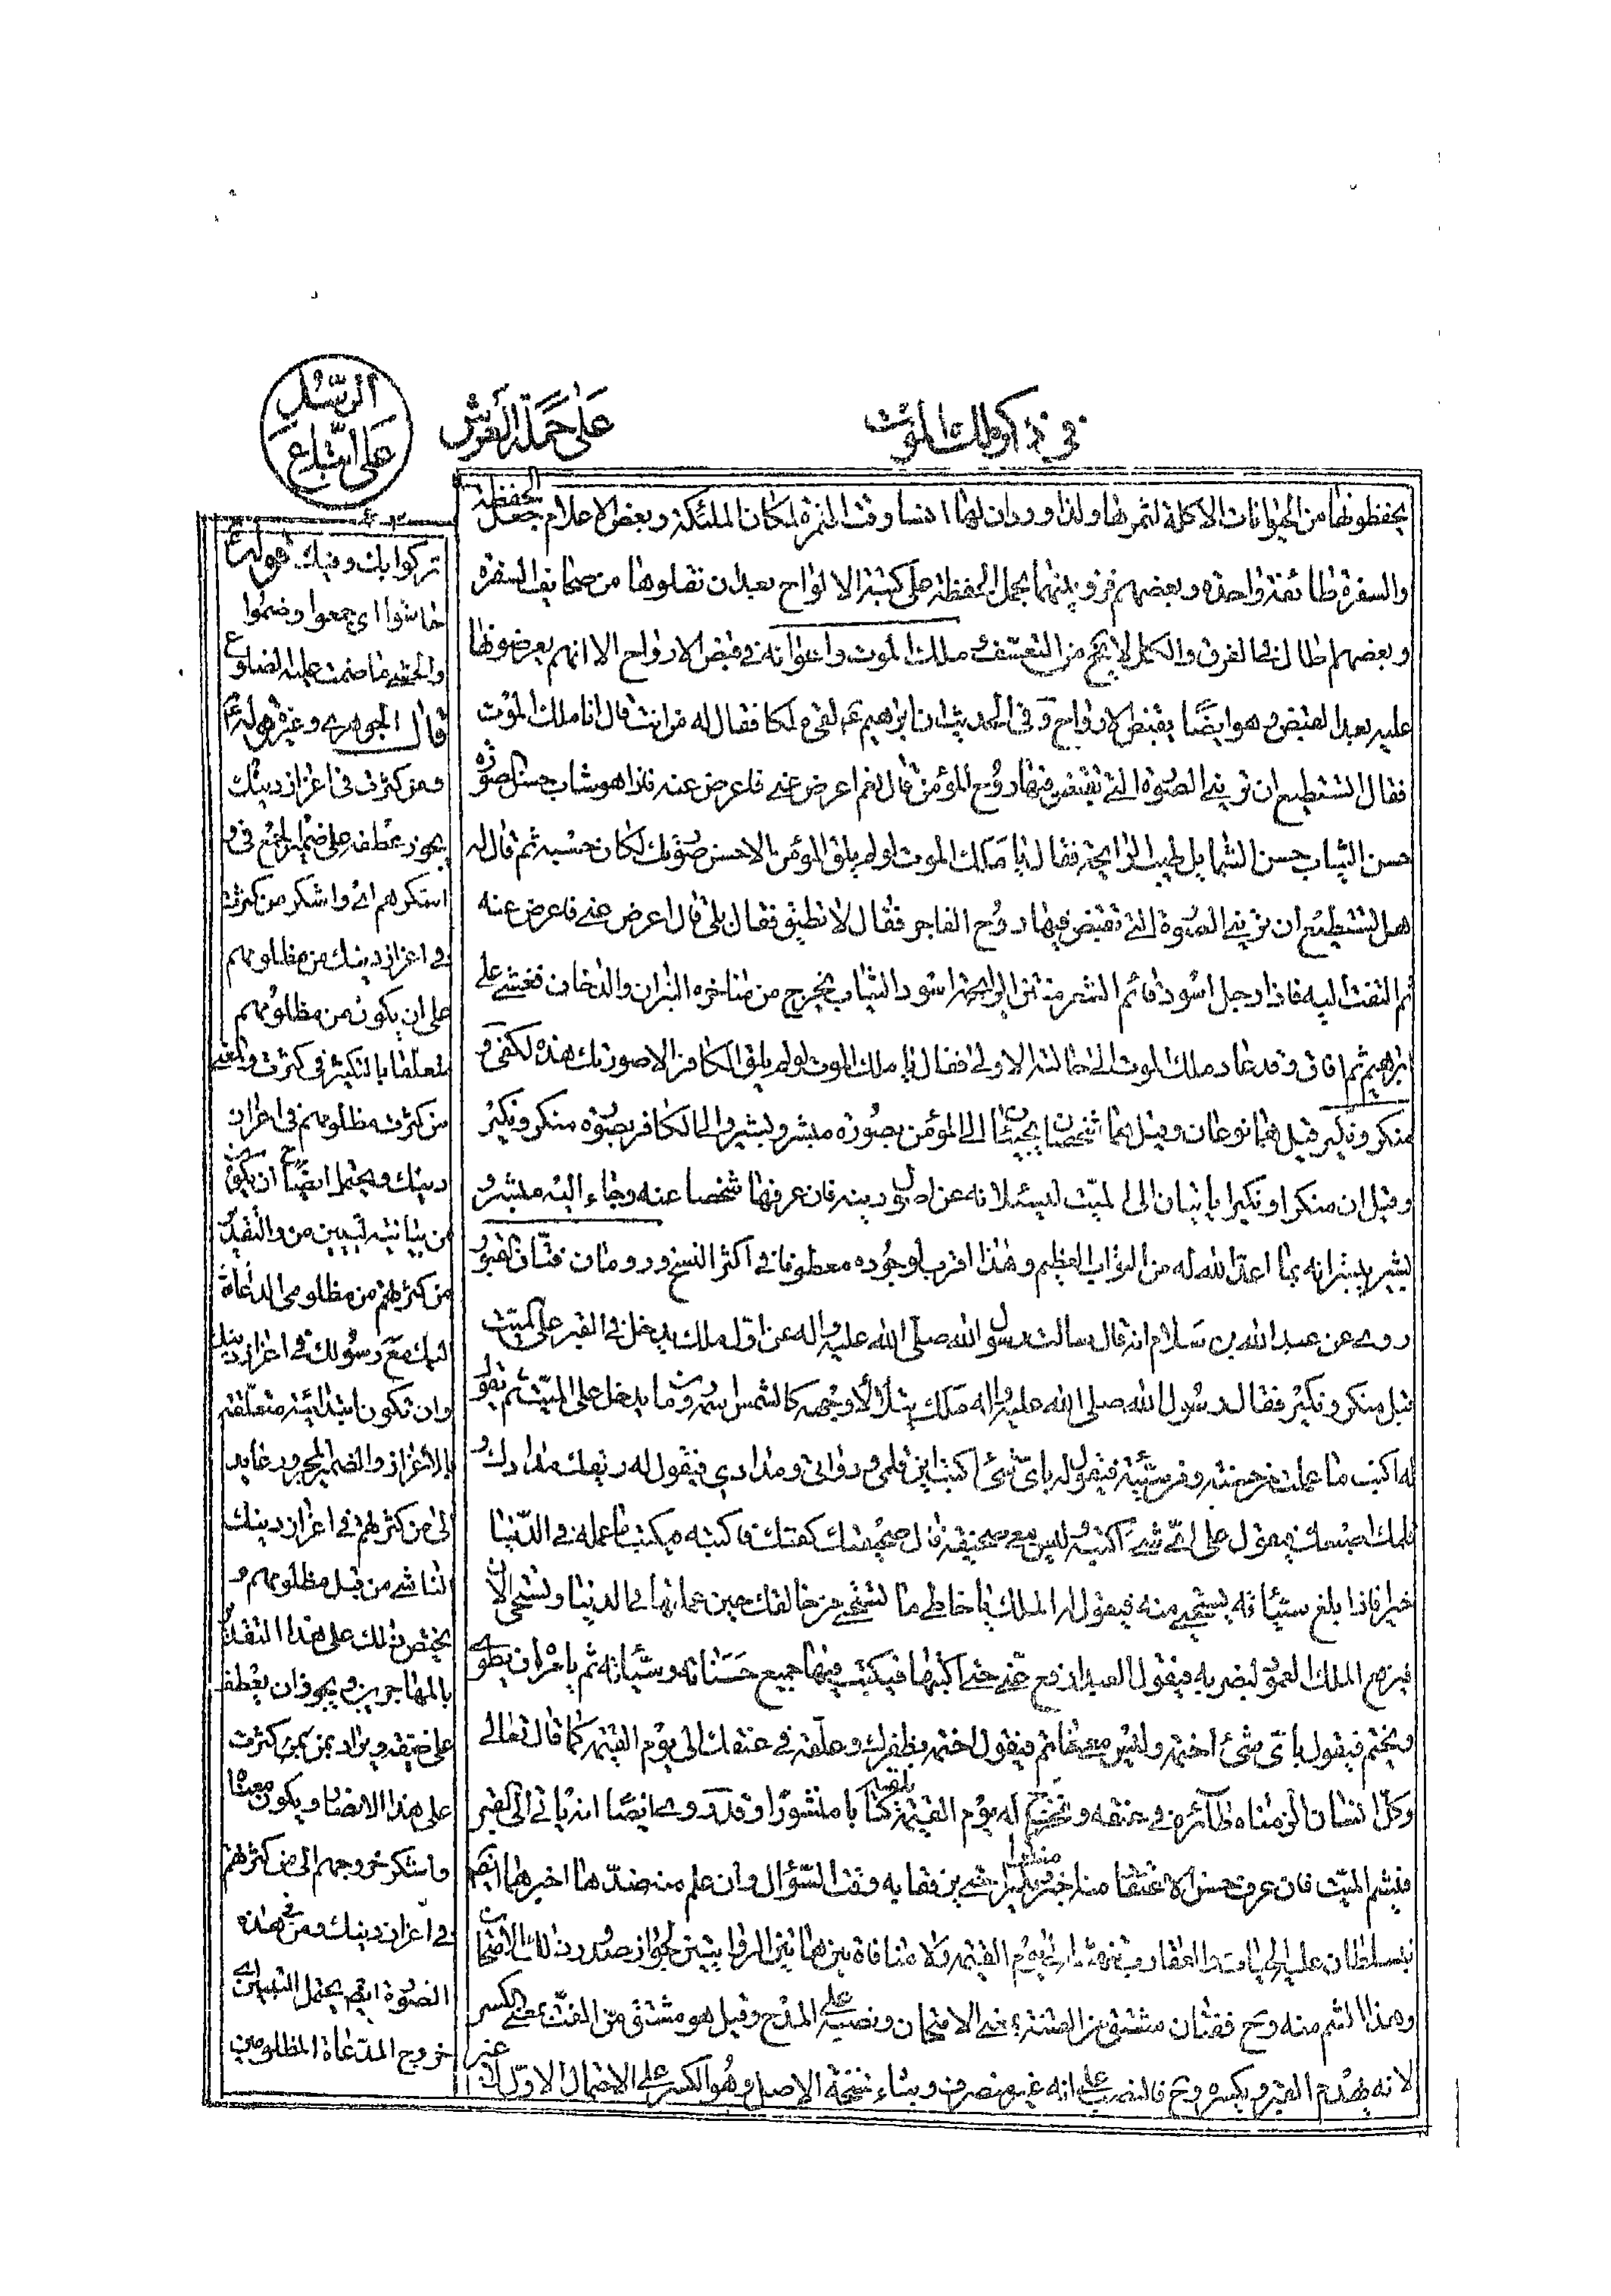 في ذكر ملك الموت
على حملة العرش
الرسل
على اتباع
يحفظونها من الحيوانات الاكلة لثمرتها ولذا ورد ان لها انسا وقت الثمرة لمكان الملئكة وبعض الاعلام جعل الحفظة
والسفرة طائفة واحدة وبعضهم فرق بينهما بحمل الحفظة على كتبة الالواح بعد ان نقلوها من صحايف السفرة
وبعضهم اطال في الفرق والكل لا يخ من التعسف ملك الموت واعوانه في قبض الارواح الا انهم يعرضونها
عليه بعد القبض وهو ايضا يقبض الارواح وفي الحديث ان ابراهيم ع لقي ملكا فقال له من انت قال انا ملك الموت
فقال اتستطيع ان تريني الصورة التي تقبض فيها روح المؤمن قال نعم اعرض عني فاعرض عنه فاذا هو شاب حسن الصورة
حسن الثياب حسن الشمايل طيب الرايحة فقال يا ملك الموت لو لم يلق المؤمن الا حسن صورتك لكان حسبه ثم قال له
هل تستطيع ان تريني الصورة التي تقبض فيها روح الفاجر فقال لا تطيق فقال بلى قال اعرض عني فاعرض عنه
ثم التفت اليه فاذا رجل اسود قائم الشعر منتن الرايحة اسود الثياب يخرج من مناخره النيران والدخان فغشي على
ابرهيم ثم افاق وقد عاد ملك الموت الى حالته الاولى فقال يا ملك الموت لو لم يلق الكافر الا صورتك هذه لكفى و
منكر ونكير قيل هما نوعان وقيل هما شخصان يجيئان الى المؤمن بصورة مبشر وبشير والى الكافر بصورة منكر ونكير
وقيل ان منكرا ونكيرا ياتيان الى الميت ليسئلانه عن اصول دينه فان عرفها شخصا عنه وجاء اليه مبشر و
بشير يبشرانه بما اعد الله له من الثواب العظيم وهذا اقرب لوجوده معطوفا في اكثر النسخ ورومان فتان القبور
روي عن عبد الله بن سلام انه قال سالت رسول الله صلى الله عليه واله عن اول ملك يدخل في القبر على الميت
قبل منكر ونكير فقال رسول الله صلى الله عليه واله ملك يتلألأ وجهه كالشمس اسمه رومان يدخل على الميت ثم يقول
له اكتب ما عملت من حسنة ومن سيئة فيقول له باي شئ اكتب اين قلمي ودواتي ومدادي فيقول له ريقك مدادك و
قلمك اصبعك فيقول على اي شئ اكتب وليس معي صحيفة قال صحيفتك كفنك فاكتبه فيكتب ما عمله في الدنيا
خيرا فاذا بلغ سيئاته يستحيي منه فيقول له الملك يا خاطي ما تستحيي من خالقك حين عملتها في الدنيا وتستحي الان
فيرفع الملك العمود ليضربه فيقول العبد ارفع عني حتى اكتبها فيكتب فيها جميع حسناته وسيئاته ثم يامره ان يطوي
ويختم فيقول باي شئ اختمه وليس معي خاتم فيقول اختمه بظفرك وعلقه في عنقك الى يوم القيمة كما قال تعالى
وكل انسان الزمناه طآئره في عنقه ونخرج له يوم القيمة كتابا يلقاه منشورا وقد روي ايضا انه ياتي الى القبر
فيشم الميت فان عرف حسن الاعتقاد منه اخبر منكرا ونكيرا حتى يرفقا به وقت السؤال وان علم منه ضد هذا اخبرهما ايضا
فيسلطان عليه الحيات والعقارب الى يوم القيمة ولا منافاة بين هاتين الروايتين لجواز صدور ذلك الامتحان
وهذا الشم منه وح ففتان مشتق من الفتنة بمعنى الامتحان ونصبه على المدح وقيل هو مشتق من الفت بمعنى الكسر
لانه يهدم القبر ويكسره وح فالنصب على انه غير منصرف وبناء نسخة الاصل وهو الكسر على الاحتمال الاول
تركوا بك وفيك قوله ع
حاشوا اي جمعوا وضموا
والحشى ما ضمت عليه الضلوع
قال الجوهري وغيره قوله ع
ومن كثرت في اعزاز دينك
يجوز عطفه على ضمير الجمع في و
اشكرهم اي واشكر من كثرت
في اعزاز دينك من مظلومهم
على ان يكون من مظلومهم
متعلقا بالتكثير في كثرت والمعنى
من كثرت مظلومهم في اعزاز
دينك ويحتمل ايضا ان يكون
من بيانية لتبيين من والتقدير
من كثرتهم من مظلومي الدعاة
اليك مع رسولك في اعزاز دينك
وان تكون ابتدائية متعلقة
بالاعزاز والضمير المجرور عايد
الى من كثرتهم في اعزاز دينك
الناشي من قبل مظلومهم و
يختص ذلك على هذا التقدير
بالمهاجرين ويجوز ان يعطف
على ضيقه ويراد بمن كثرت
على هذا الانصار ويكون معناه
واشكر خروجهم الى من كثرتهم
في اعزاز دينك ومن في هذه
الصورة ايضا يحتمل التبيين اي
خروج الدعاة المظلومين
عنه